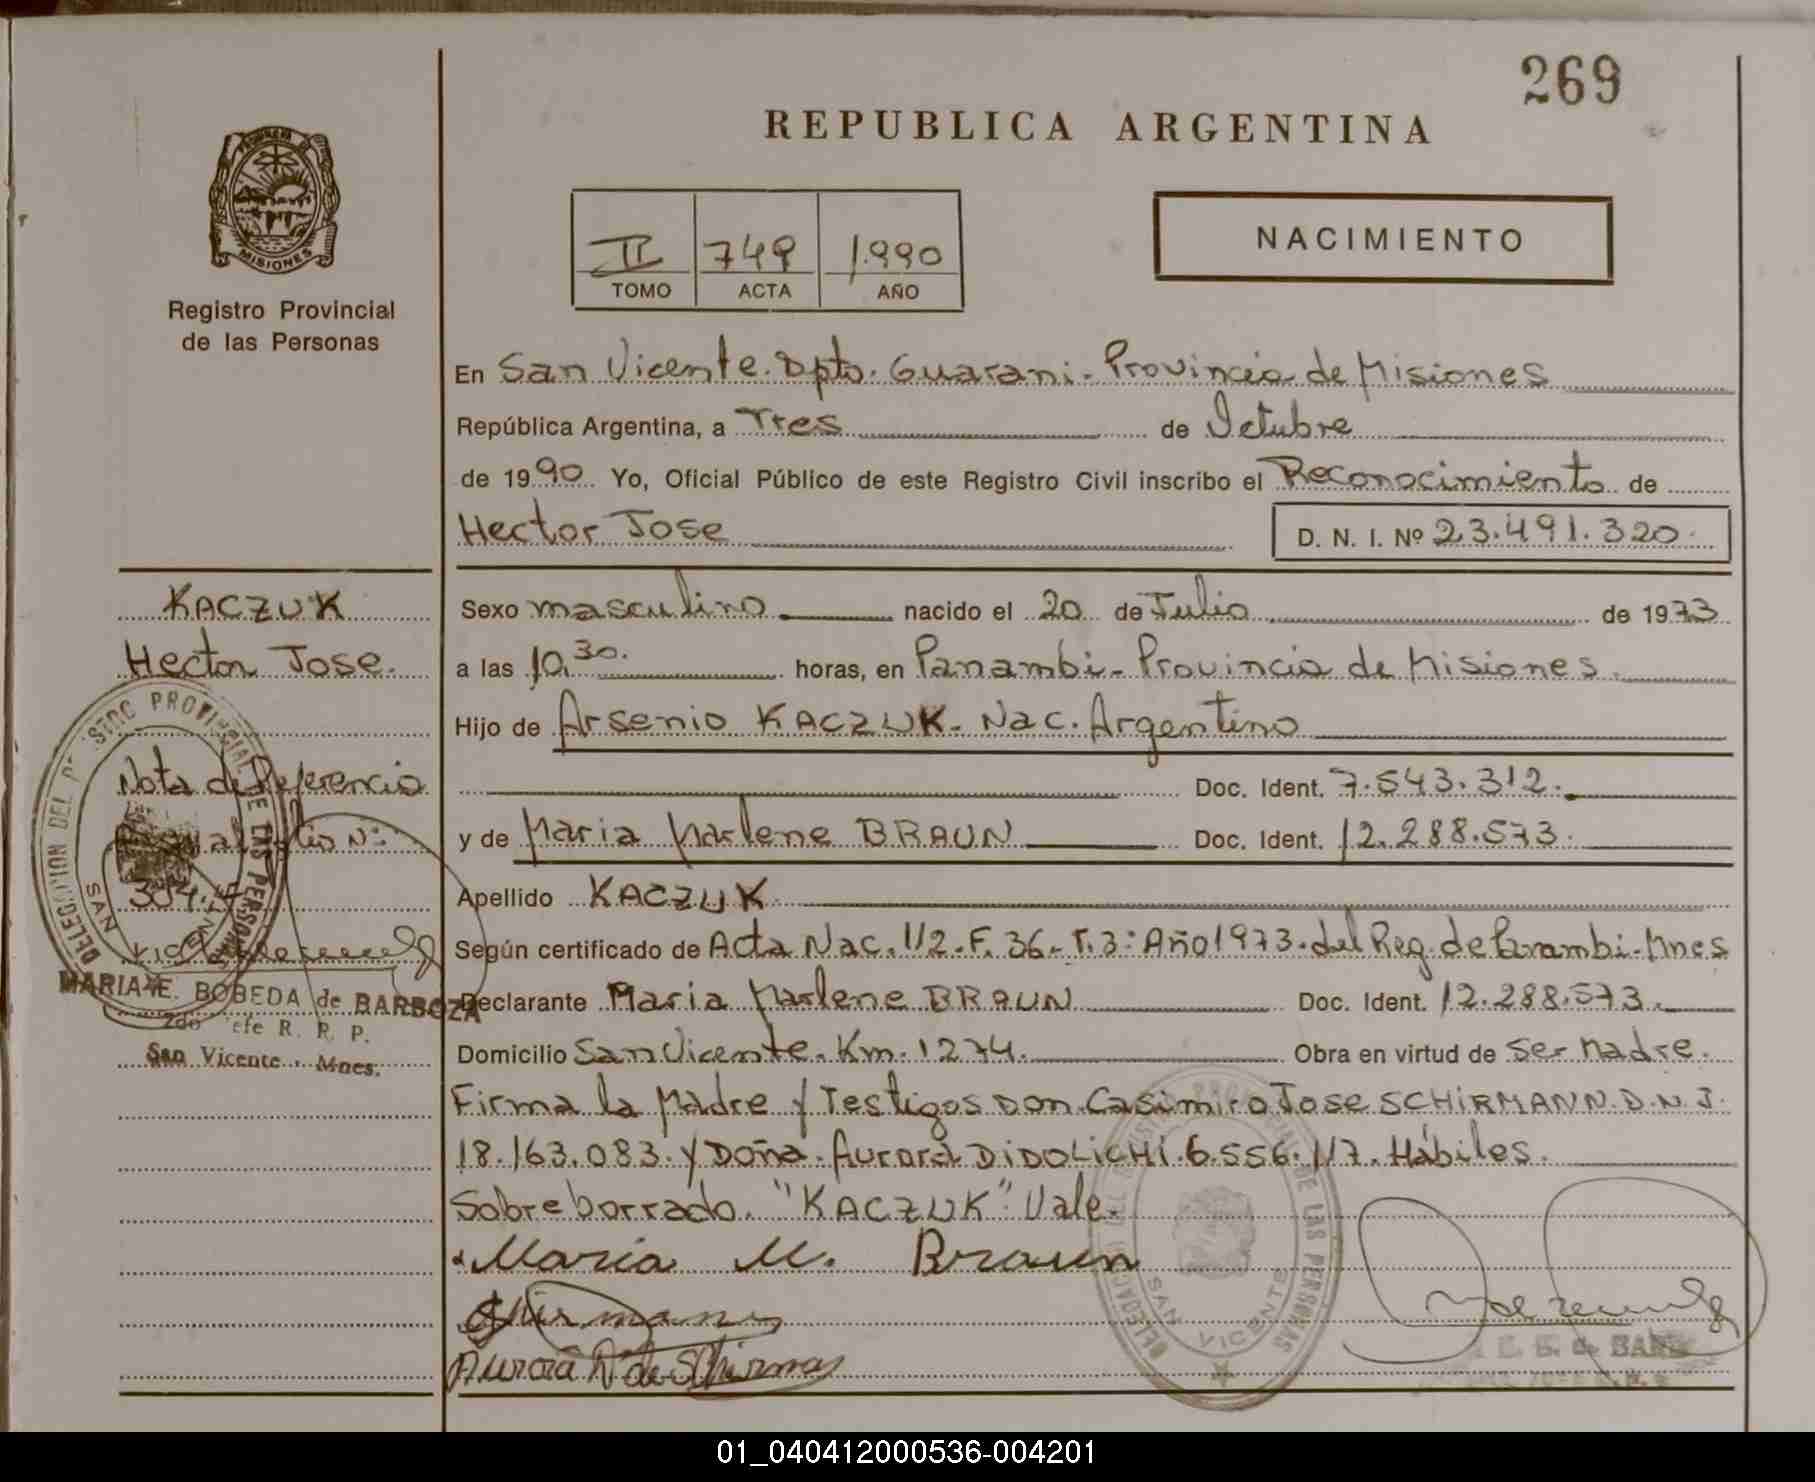 269
REPUBLICA ARGENTINA
MISIONES
Registro Provincial
de las Personas
II 749 1.990
TOMO ACTA AÑO
NACIMIENTO
En San Vicente. Dpto. Guarani. Provincia de Misiones
República Argentina, a Tres de Octubre
de 1990 Yo, Oficial Público de este Registro Civil inscribo el Reconocimiento de
Hector Jose D. N. I. Nº 23.491.320.
KACZUK
Hector Jose.
Nota de Referencia
Nº
MARIA E. BOBEDA de BARBOZA
2do Jefe R. R. P.
San Vicente - Mnes.
Sexo masculino nacido el 20 de Julio de 1973
a las 10.30. horas, en Panambi - Provincia de Misiones.
Hijo de Arsenio KACZUK. Nac. Argentino
Doc. Ident. 7.543.312.
y de Maria Marlene BRAUN Doc. Ident. 12.288.573.
Apellido KACZUK
Según certificado de Acta Nac. 112. F. 36. T. 3: Año 1973. del Reg. de Panambi - Mnes
Declarante Maria Marlene BRAUN Doc. Ident. 12.288.573.
Domicilio San Vicente. Km. 1274. Obra en virtud de ser Madre.
Firma la Madre y Testigos Don Casimiro Jose SCHIRMANN. D.N.I.
18.163.083. y Doña. Aurora DIDOLICHI. 6.556.117. Hábiles.
Sobre borrado. "KACZUK" Vale.
Maria M. Braun
Schirmann
Aurora D de Schirman
DELEGACION DEL REGISTRO PROVINCIAL DE LAS PERSONAS
SAN VICENTE
01_040412000536-004201